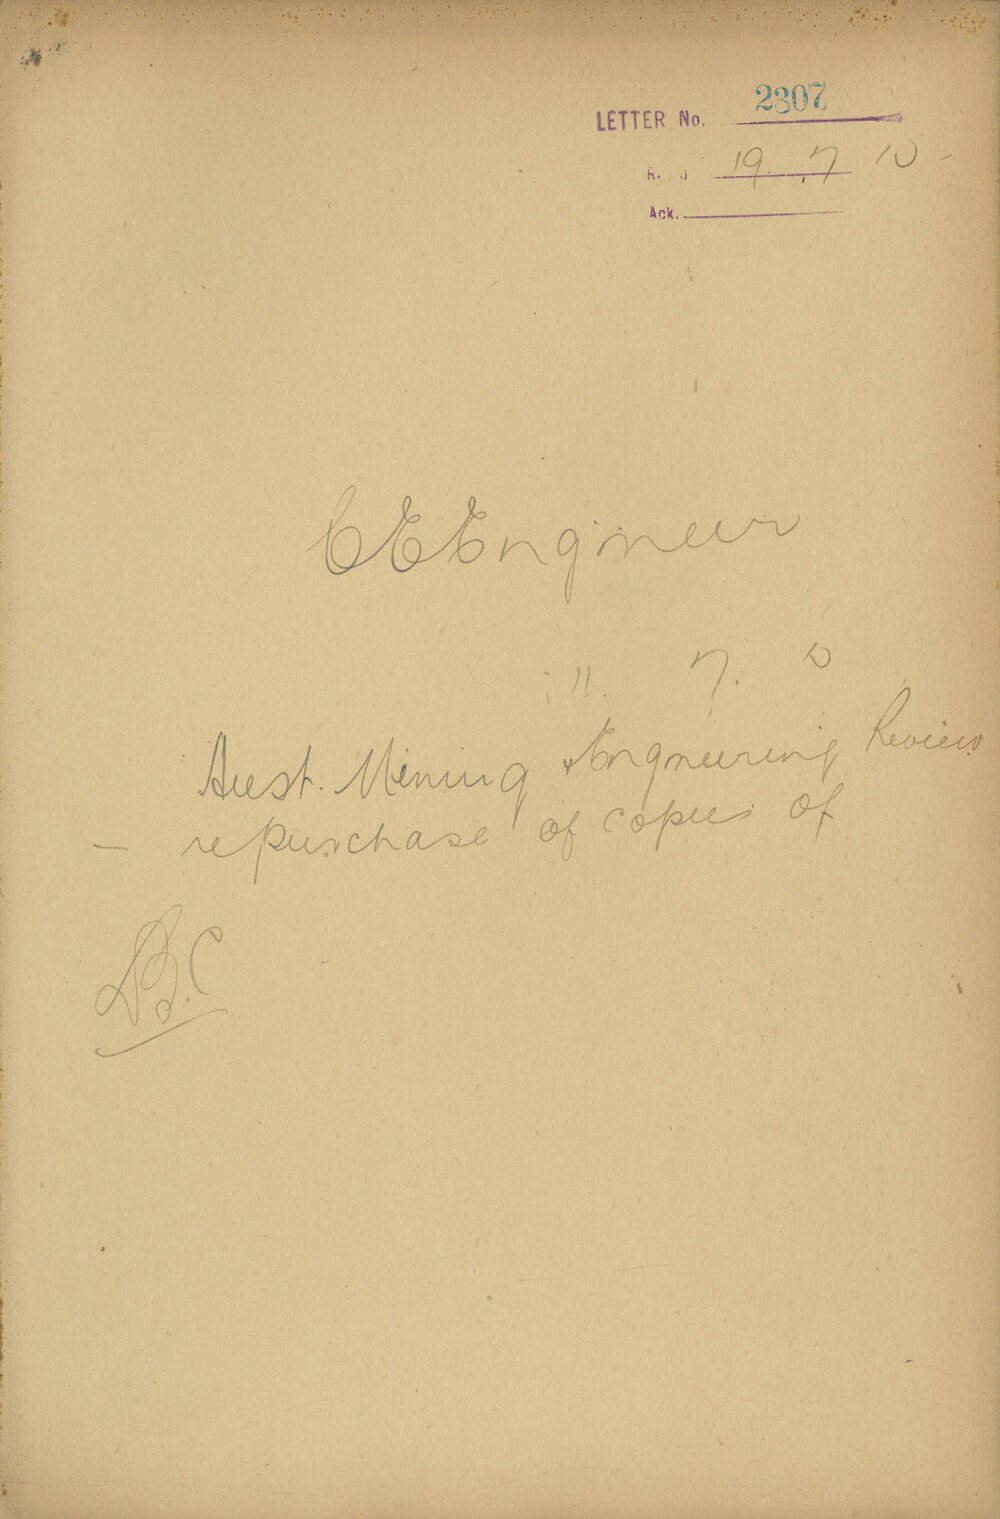 LETTER No. 2307
19. 7 10
Ack.
C E Engineer
11. 7. 10
Aust. Mining & Engineering Review
— re purchase of copies of
B.C